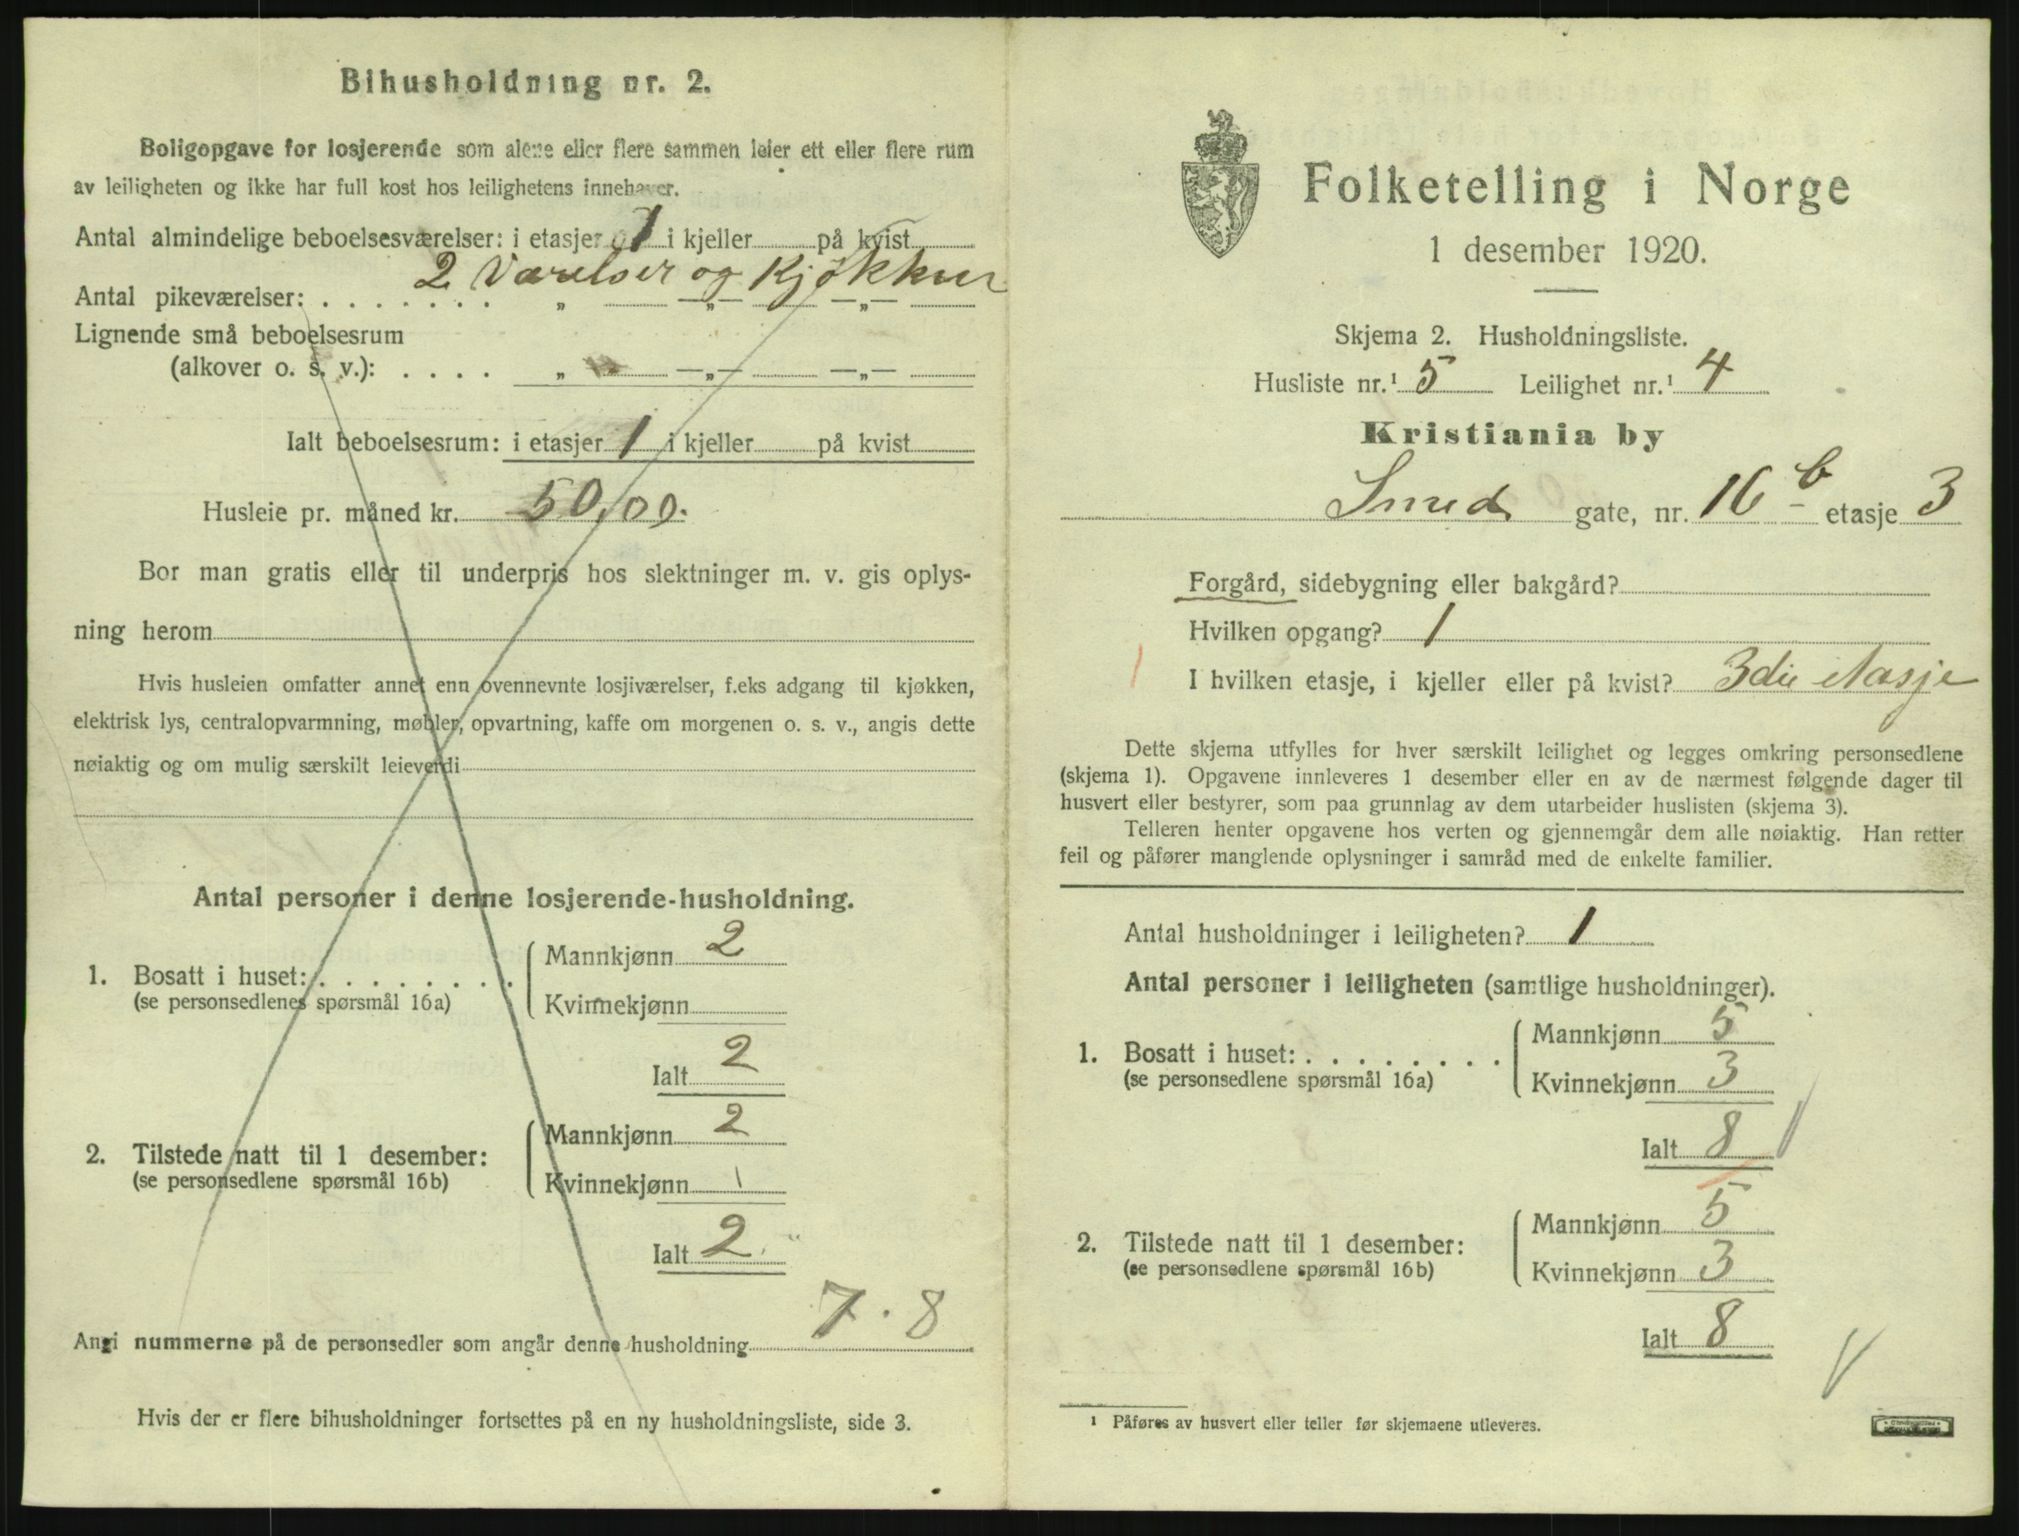 Bihusholdning nr. 2.
Boligopgave for losjerende som alene eller flere sammen leier ett eller flere rum
av leiligheten og ikke har full kost hos leilighetens innehaver.
Antal almindelige beboelsesværelser: i etasjer 1 i kjeller på kvist
2 Værelser og Kjøkken
Antal pikeværelser: . . . . . . . „ —„— —„—
Lignende små beboelsesrum
(alkover o. s. v.): . . . . „ —„— —„—
Ialt beboelsesrum: i etasjer 1 i kjeller på kvist
Husleie pr. måned kr. 50,00.
Bor man gratis eller til underpris hos slektninger m. v. gis oplys-
ning herom
Hvis husleien omfatter annet enn ovennevnte losjiværelser, f.eks adgang til kjøkken,
elektrisk lys, centralopvarmning, møbler, opvartning, kaffe om morgenen o. s. v., angis dette
nøiaktig og om mulig særskilt leieverdi
Antal personer i denne losjerende-husholdning.
1. Bosatt i huset: . . . . . . . . Mannkjønn 2
(se personsedlenes spørsmål 16a) Kvinnekjønn
Ialt 2
2. Tilstede natt til 1 desember: Mannkjønn 2
(se personsedlene spørsmål 16b) Kvinnekjønn 1
Ialt 2
Angi nummerne på de personsedler som angår denne husholdning 7 . 8
Hvis der er flere bihusholdninger fortsettes på en ny husholdningsliste, side 3.
Folketelling i Norge
1 desember 1920.
Skjema 2. Husholdningsliste.
Husliste nr.¹ 5 Leilighet nr.¹ 4
Kristiania by
Smed gate, nr. 16 b etasje 3
Forgård, sidebygning eller bakgård?
Hvilken opgang? 1
1 I hvilken etasje, i kjeller eller på kvist? 3die etasje
Dette skjema utfylles for hver særskilt leilighet og legges omkring personsedlene
(skjema 1). Opgavene innleveres 1 desember eller en av de nærmest følgende dager til
husvert eller bestyrer, som paa grunnlag av dem utarbeider huslisten (skjema 3).
Telleren henter opgavene hos verten og gjennemgår dem alle nøiaktig. Han retter
feil og påfører manglende oplysninger i samråd med de enkelte familier.
Antal husholdninger i leiligheten? 1
Antal personer i leiligheten (samtlige husholdninger).
1. Bosatt i huset: . . . . . . . . Mannkjønn 5
(se personsedlene spørsmål 16a) Kvinnekjønn 3
Ialt 8
2. Tilstede natt til 1 desember: Mannkjønn 5
(se personsedlene spørsmål 16b) Kvinnekjønn 3
Ialt 8
¹ Påføres av husvert eller teller før skjemaene utleveres.